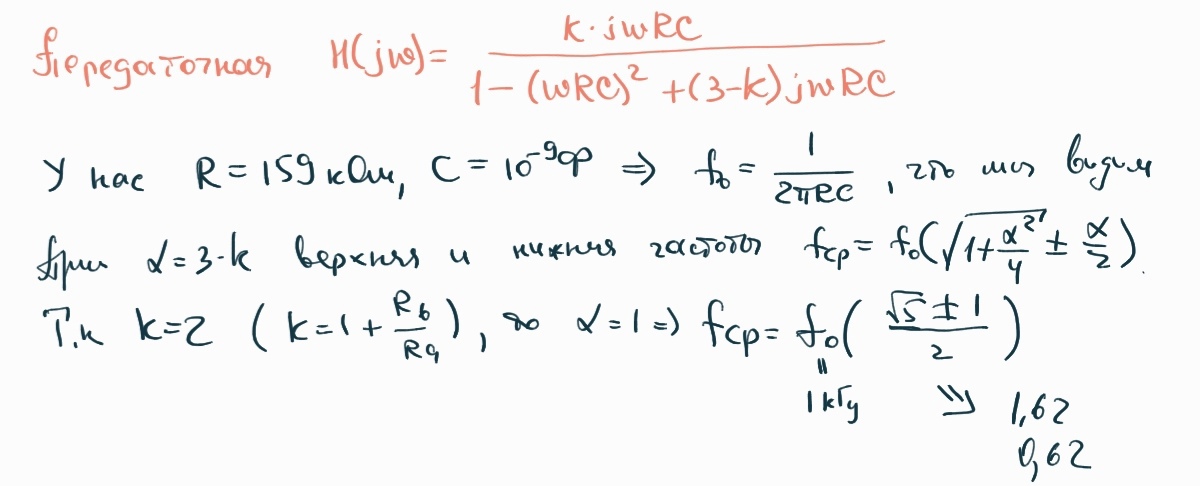 Передаточная H(jω) = k·jωRC / (1 − (ωRC)² + (3−k)jωRC)
У нас R = 159 кОм, C = 10⁻⁹ф ⇒ f₀ = 1 / (2πRC), что мы видим
При α = 3-k верхняя и нижняя частоты fср = f₀(√(1 + α²/4) ± α/2).
Т.к k=2 (k = 1 + Rb/Ra), то α = 1 => fср = f₀((√5 ± 1)/2)
= 1 кГц ⇒ 1,62
0,62